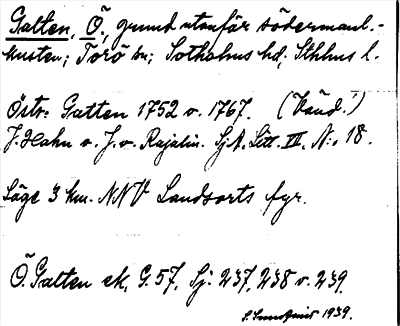 Gatten, Ö, grund utanför södermanl.-
kusten; Torö sn; Sotholms hd; Sthlms l.
Östr: Gatten 1752 o. 1767. (Vänd!)
J. Hahn o. J. v. Rajalin. SjA. Litt. III, N:o 18.
Läge 3 km. NNV Landsorts fyr.
Ö. Gatten ek, G. 57, Sj: 237, 238 o. 239
1939.